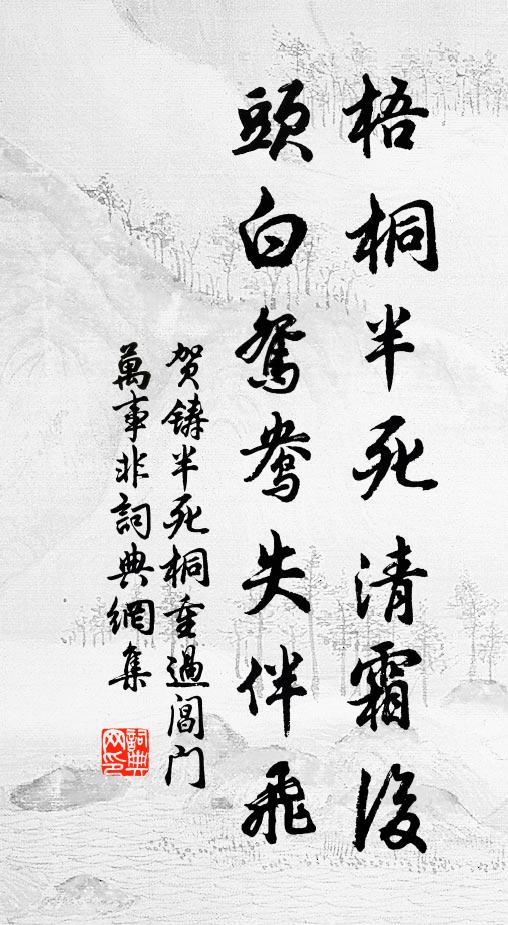 梧桐半死清霜後
頭白鴛鴦失伴飛
贺鑄半死桐重過閶门
萬事非詞典網集
詞典網印